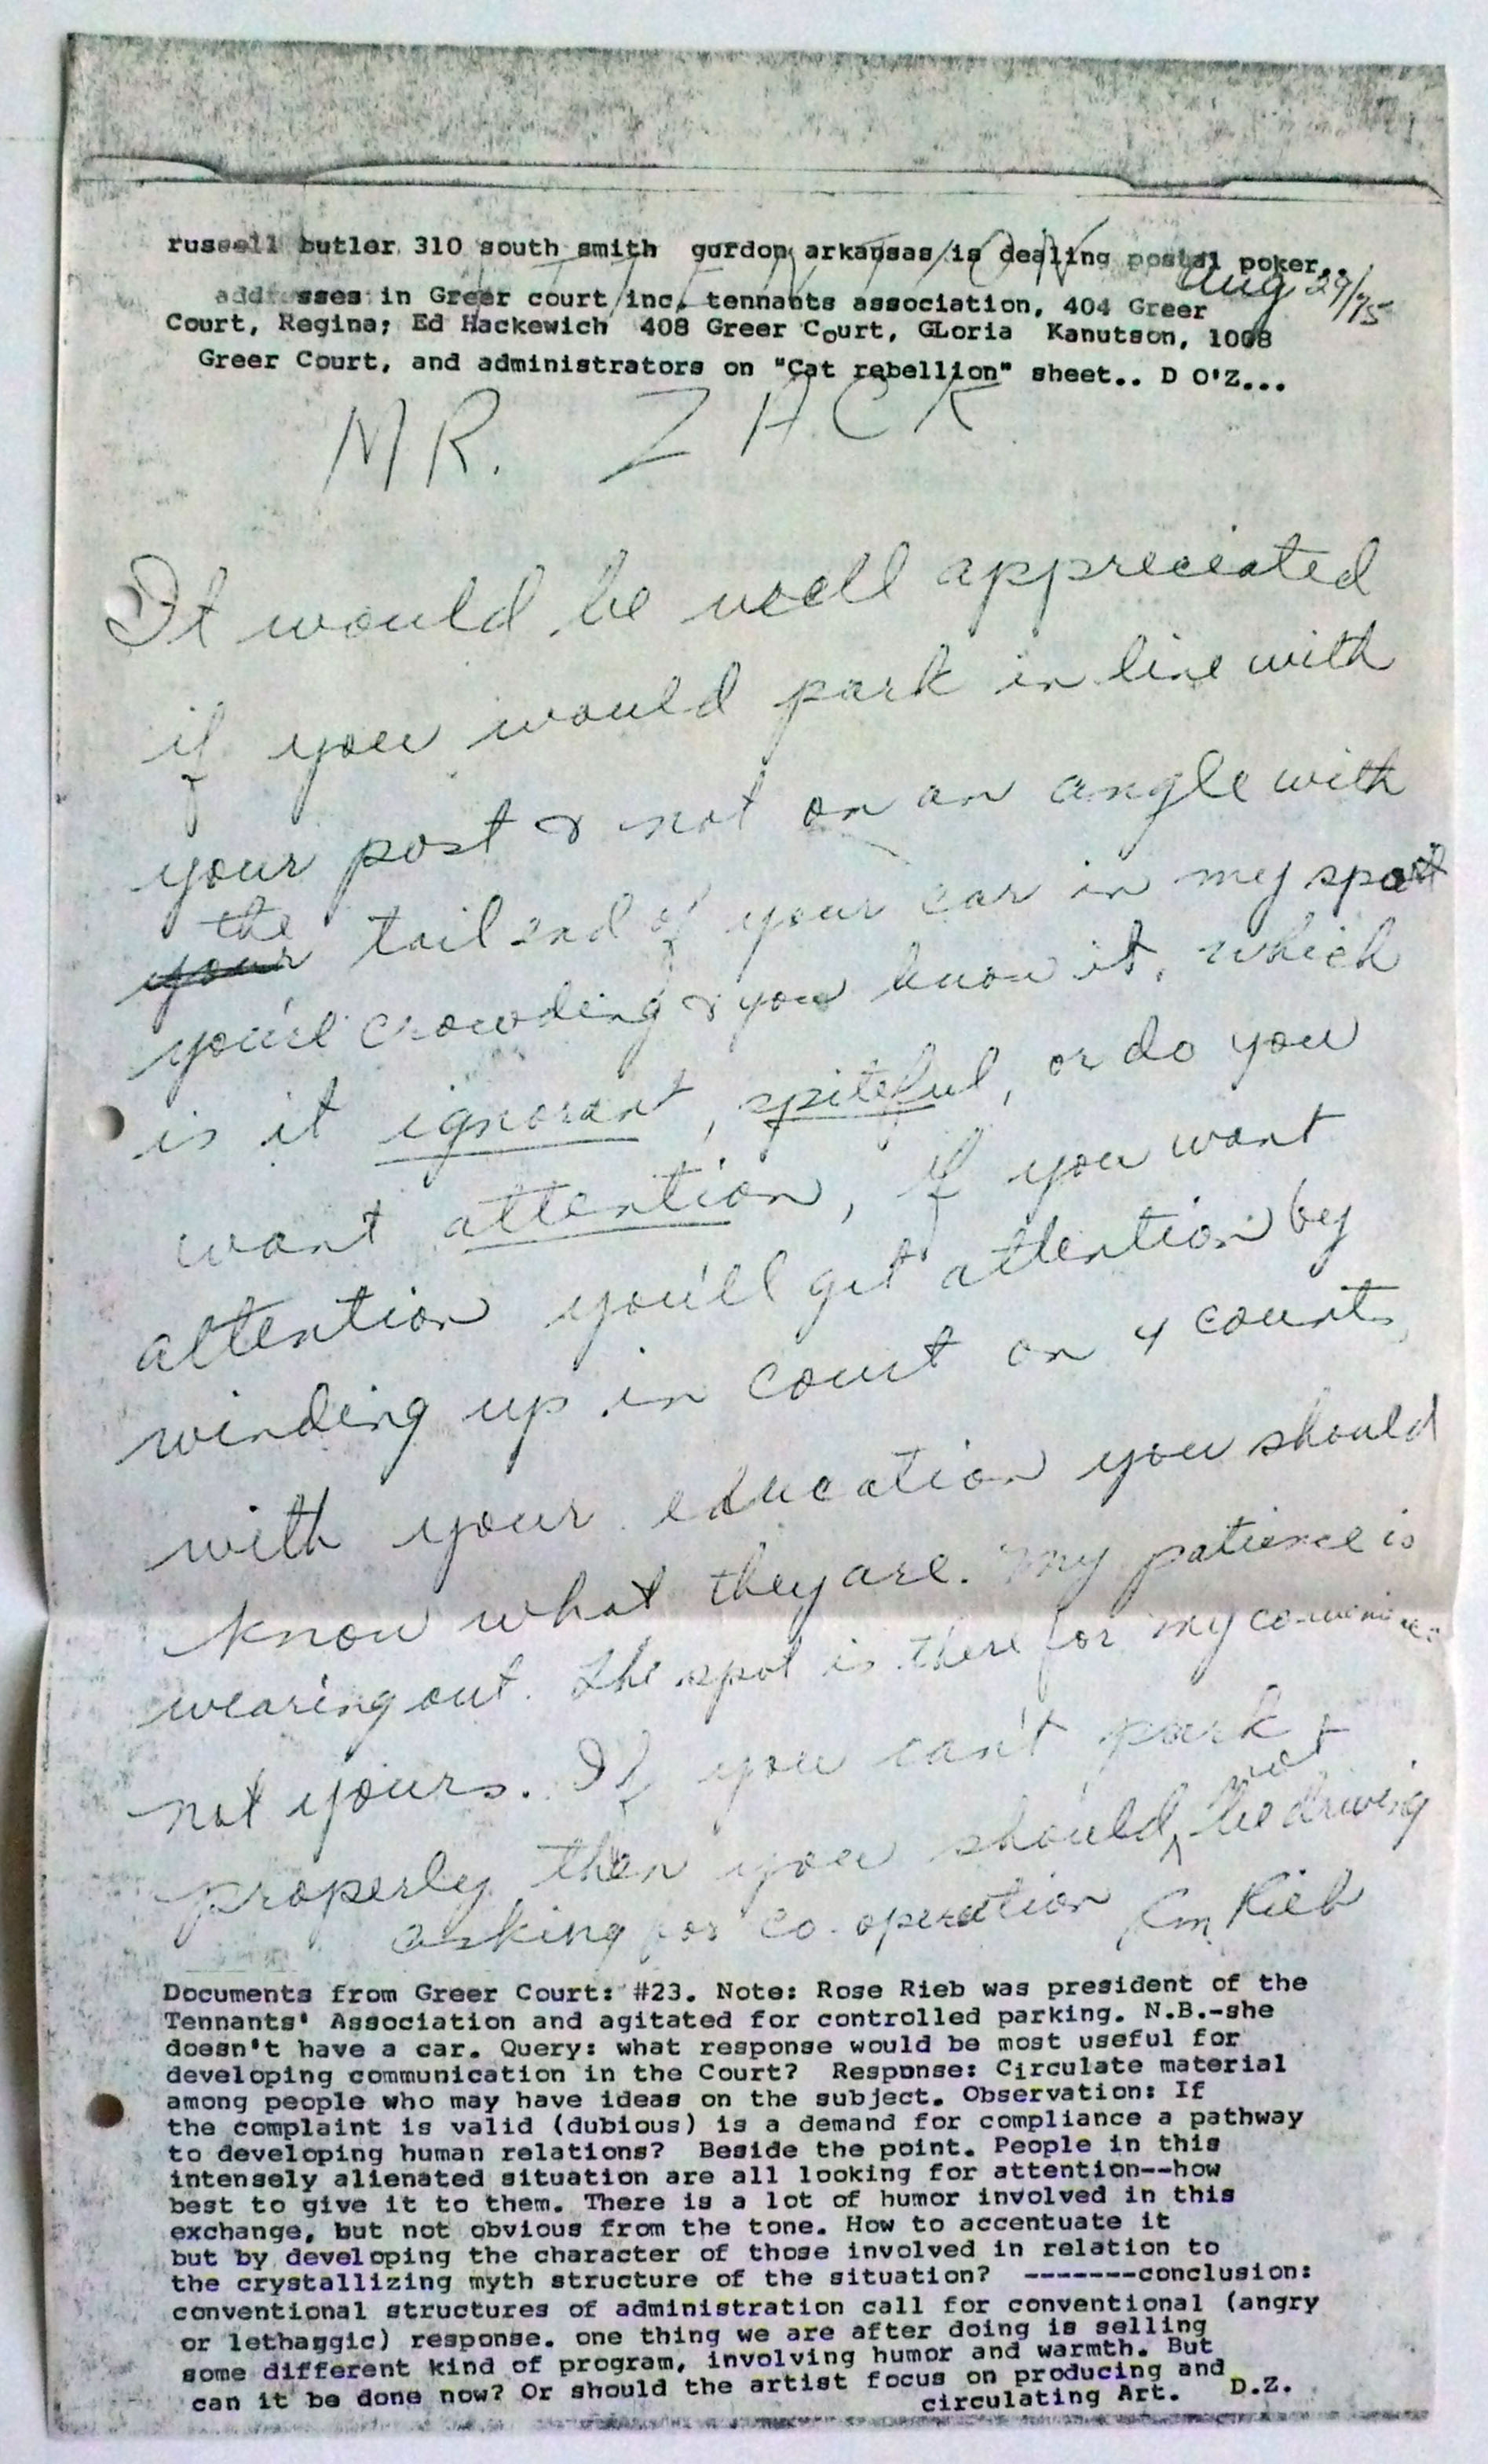 russell butler 310 south smith gurdon arkansas is dealing postal poker..
ATTENTION
Aug 29/75
addresses in Greer court inc. tennants association, 404 Greer
Court, Regina; Ed Hackewich 408 Greer Court, GLoria Kanutson, 1008
Greer Court, and administrators on "Cat rebellion" sheet.. D O'Z...
MR. ZACK
It would be well appreciated
if you would park in line with
your post & not on an angle with
the
your tail end of your car in my spot
you're crowding & you know it, which
is it ignorant, spiteful, or do you
want attention, if you want
attention you'll get attention by
winding up in court on 4 counts,
with your education you should
know what they are. My patience is
wearing out. The spot is there for my convenience
not yours. If you can't park
not
properly then you should be driving
asking for co-operation Rm Rieb
Documents from Greer Court: #23. Note: Rose Rieb was president of the
Tennants' Association and agitated for controlled parking. N.B.-she
doesn't have a car. Query: what response would be most useful for
developing communication in the Court? Response: Circulate material
among people who may have ideas on the subject. Observation: If
the complaint is valid (dubious) is a demand for compliance a pathway
to developing human relations? Beside the point. People in this
intensely alienated situation are all looking for attention--how
best to give it to them. There is a lot of humor involved in this
exchange, but not obvious from the tone. How to accentuate it
but by developing the character of those involved in relation to
the crystallizing myth structure of the situation? -------conclusion:
conventional structures of administration call for conventional (angry
or lethaggic) response. one thing we are after doing is selling
some different kind of program, involving humor and warmth. But
can it be done now? Or should the artist focus on producing and
circulating Art. D.Z.